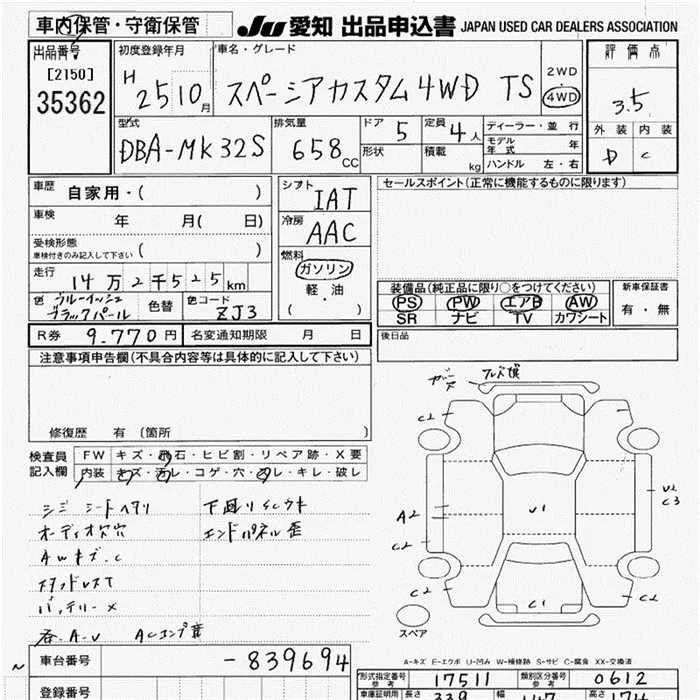 車内保管・守衛保管
JU 愛知 出品申込書 JAPAN USED CAR DEALERS ASSOCIATION
出品番号
[2150]
35362
初度登録年月
H 25 10月
車名・グレード
スペーシアカスタム4WD TS
2WD
4WD
評価点
3.5
外装 内装
D C
型式
DBA-MK32S
排気量
658CC
ドア 5
形状
定員 4人
積載 kg
ディーラー・並行
モデル年式 年
ハンドル 左・右
車歴
自家用・( )
車検
年 月( 日)
受検形態
車検付きのみ記入して下さい ( )
走行
14万2千525km
色 ブルーイッシュブラックパール
色替
色コード
ZJ3
R券 9,770円
名変通知期限 月 日
シフト
IAT
冷房
AAC
燃料
ガソリン
軽・油
( )
セールスポイント(正常に機能するものに限ります)
装備品(純正品に限り○をつけてください)
PS PW エアB AW
SR ナビ TV カワシート
新車保証書
有・無
後日品
注意事項申告欄(不具合内容等は具体的に記入して下さい)
修復歴 有 〔箇所 〕
検査員記入欄
FW キズ・飛石・ヒビ割・リペア跡・X要
内装 キズ・汚レ・コゲ・穴・スレ・キレ・破レ
シミ シートヘタリ
下廻りSCウキ
オーディオ欠穴
エンドパネル歪
AWキズ.C
スタッドレスT
バッテリーX
各A.U
C2
C2
A2
C2
C2
C2
U1
C1
U2
C3
スペア
A-キズ E-エクボ U-凹み W-補修跡 S-サビ C-腐食 XX-交換済
車台番号
-839694
登録番号
形式指定番号 参考
17511
類別区分番号 参考
0612
車庫証明用
長さ 339
幅 147
高さ 174